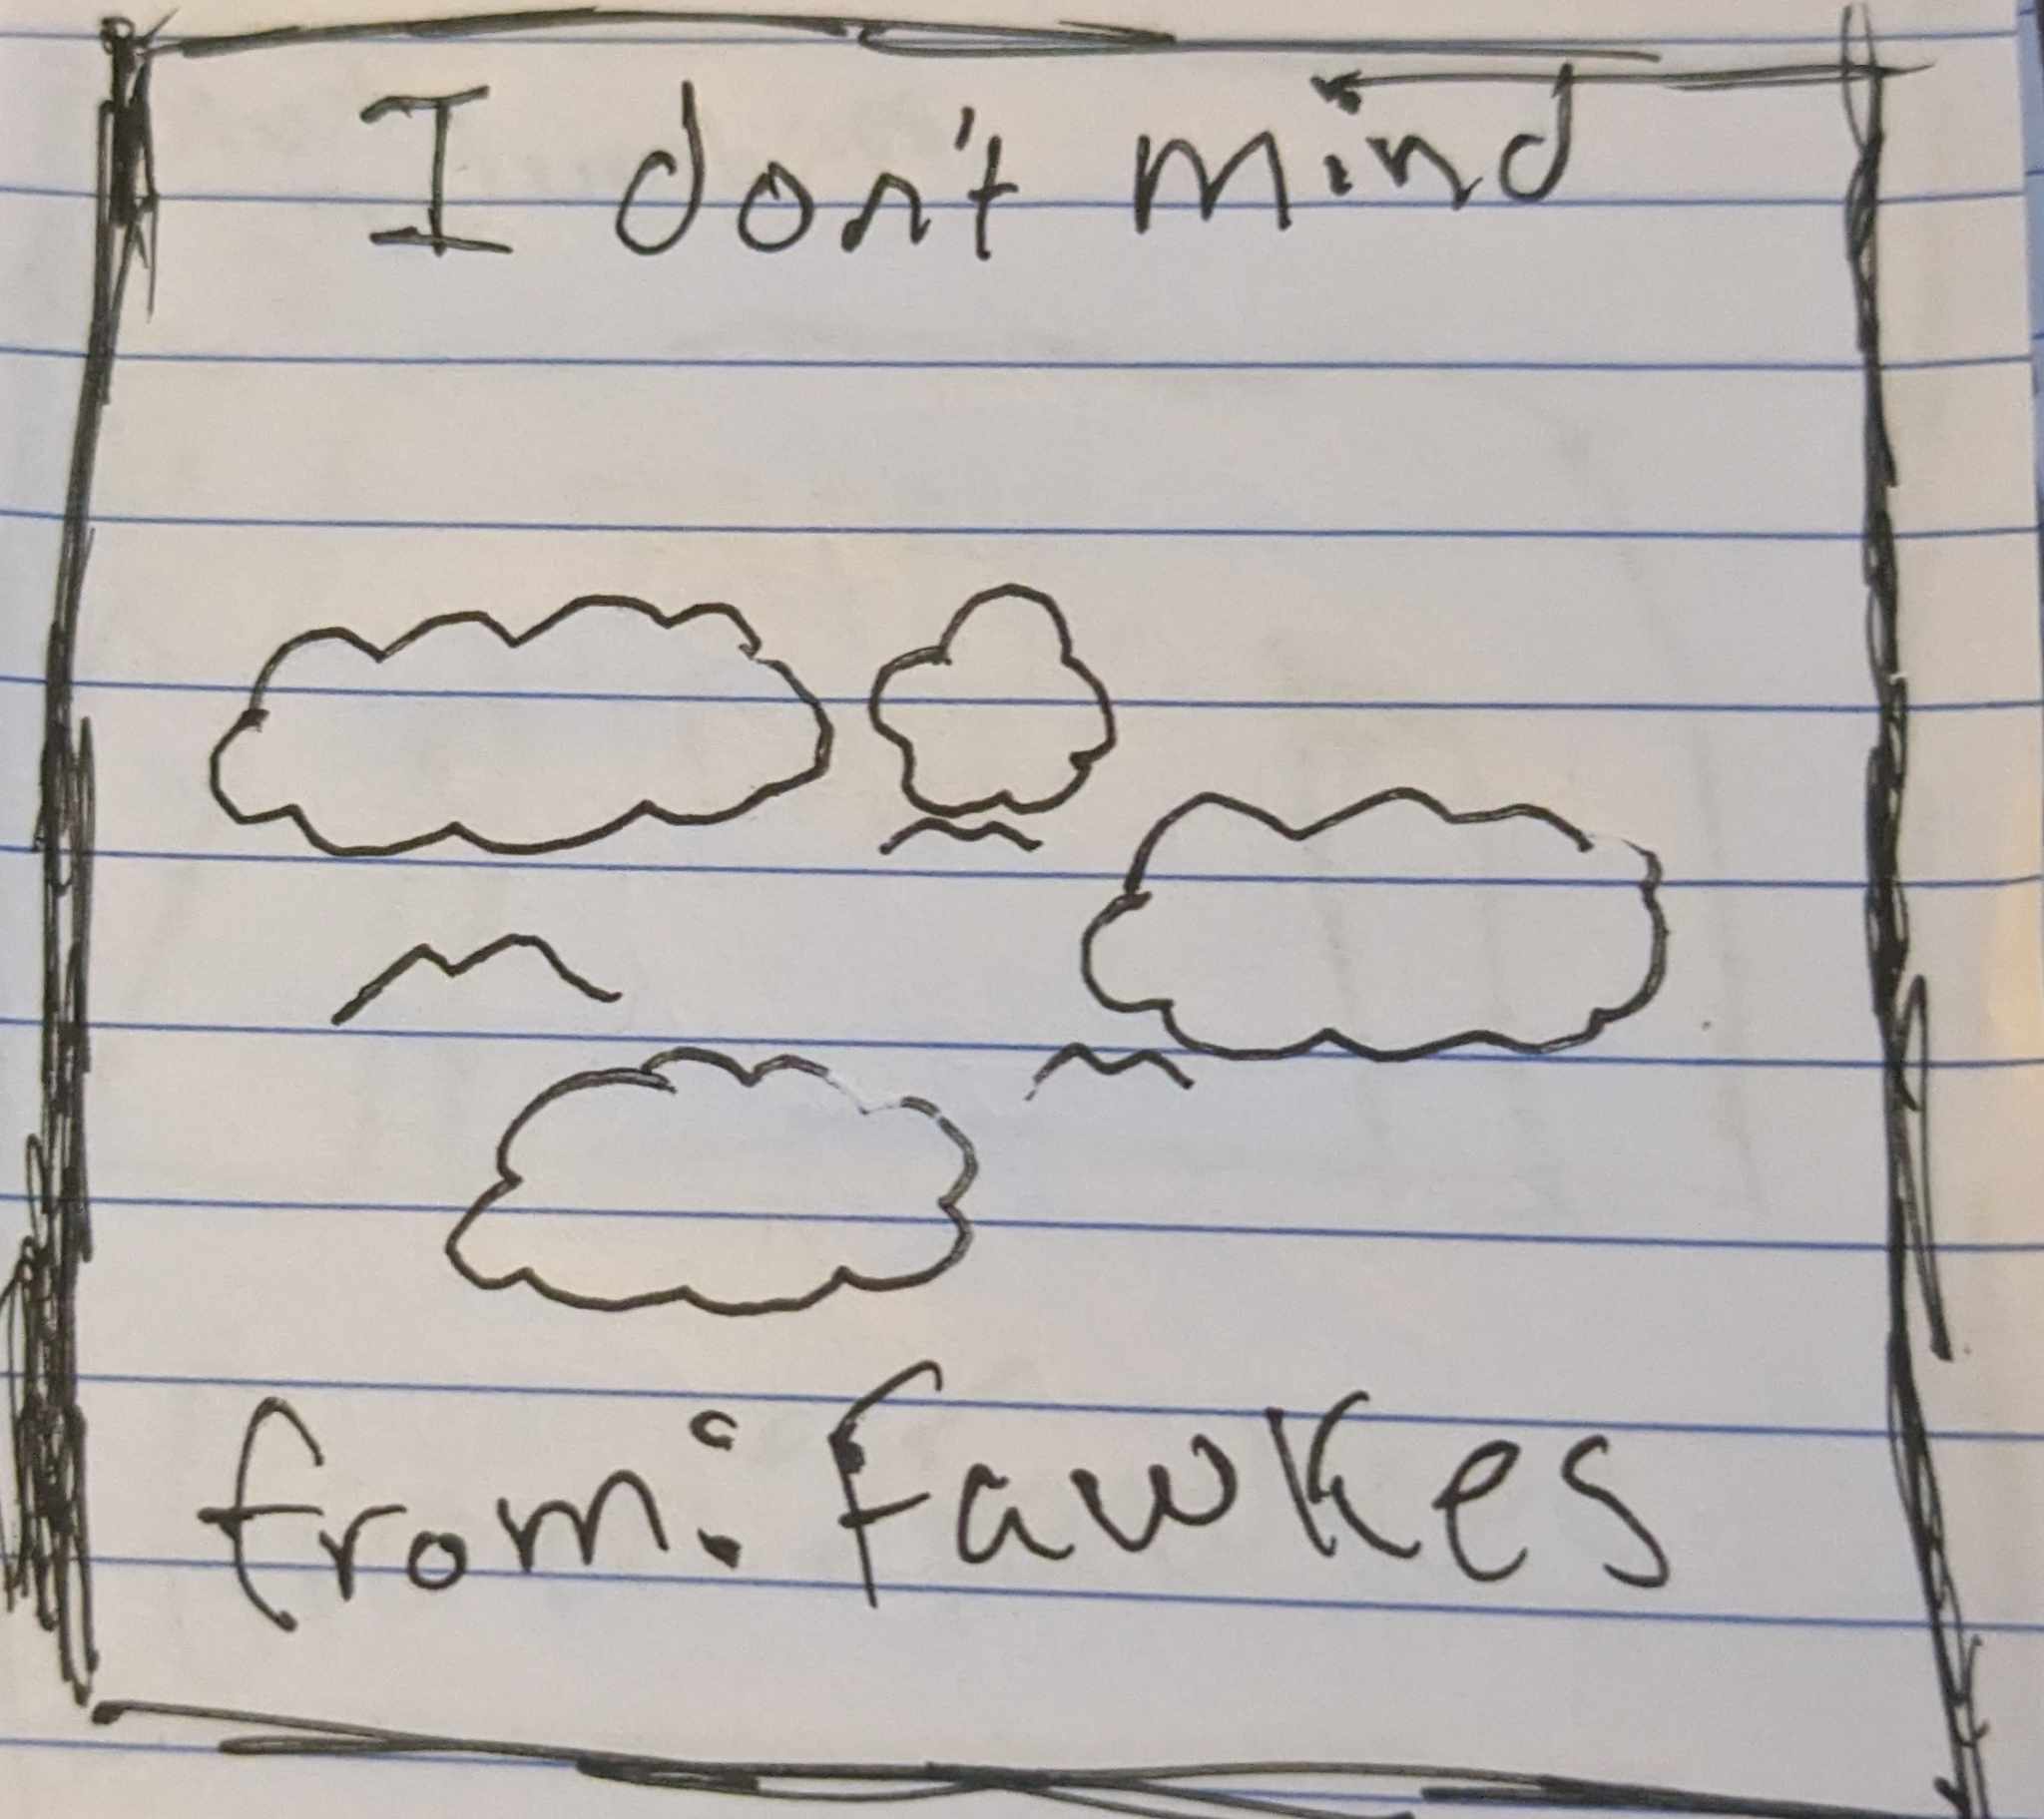 I don't mind
from: Fawkes